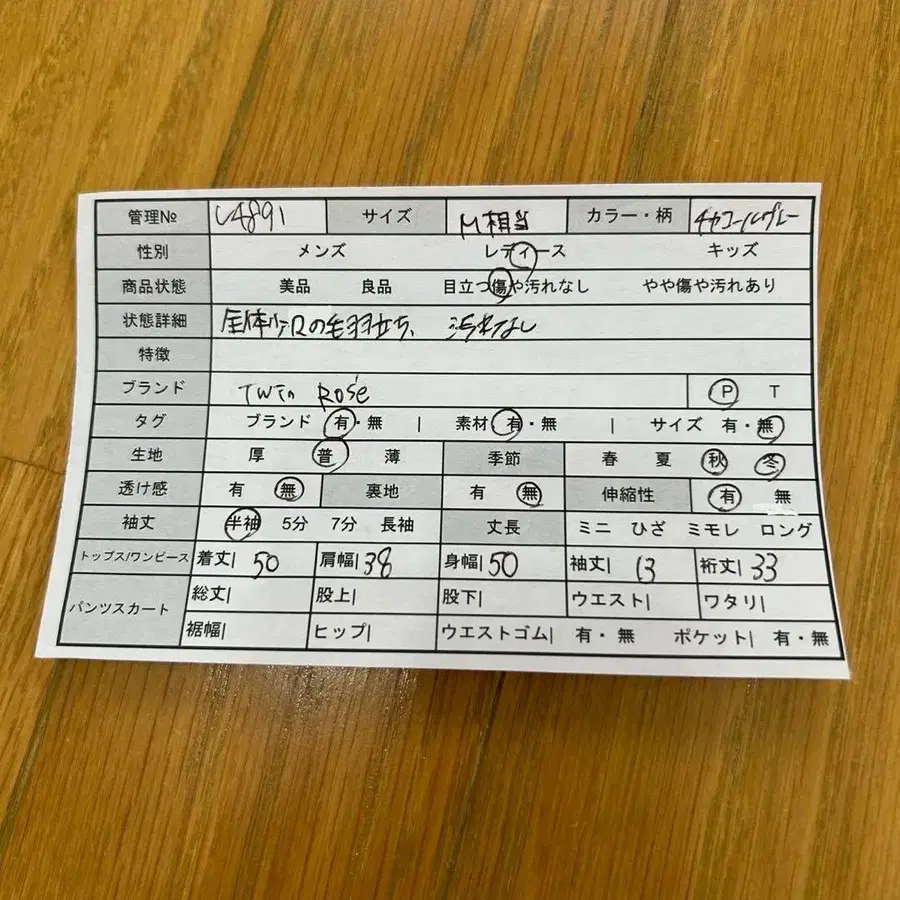 管理№ U4891 サイズ M相当 カラー・柄 チャコールグレー
性別 メンズ レディース キッズ
商品状態 美品 良品 目立つ傷や汚れなし やや傷や汚れあり
状態詳細 全体少々の毛羽立ち、汚れなし
特徴
ブランド Twin Rose P T
タグ ブランド 有・無 | 素材 有・無 | サイズ 有・無
生地 厚 普 薄 季節 春 夏 秋 冬
透け感 有 無 裏地 有 無 伸縮性 有 無
袖丈 半袖 5分 7分 長袖 丈長 ミニ ひざ ミモレ ロング
トップス/ワンピース 着丈| 50 肩幅| 38 身幅| 50 袖丈| 13 裄丈| 33
パンツスカート 総丈| 股上| 股下| ウエスト| ワタリ|
裾幅| ヒップ| ウエストゴム| 有・無 ポケット| 有・無